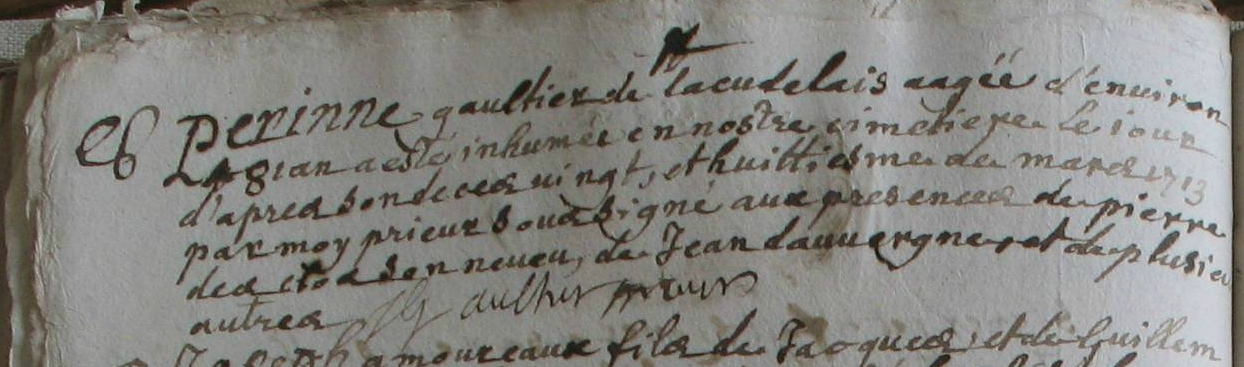 Perinne gaultier de lacudelais aagée d'environ
an a esté inhumée en nostre cimetiere le jour
d'apres son deces vingt, et huittiesme de mars 1713
par moy prieur soussigné aux presences de pierre
des clos son neveu, de Jean dauvergne, et de plusieu
autres prieur
Joseph amoureaux fils de Jacques, et de Guillem